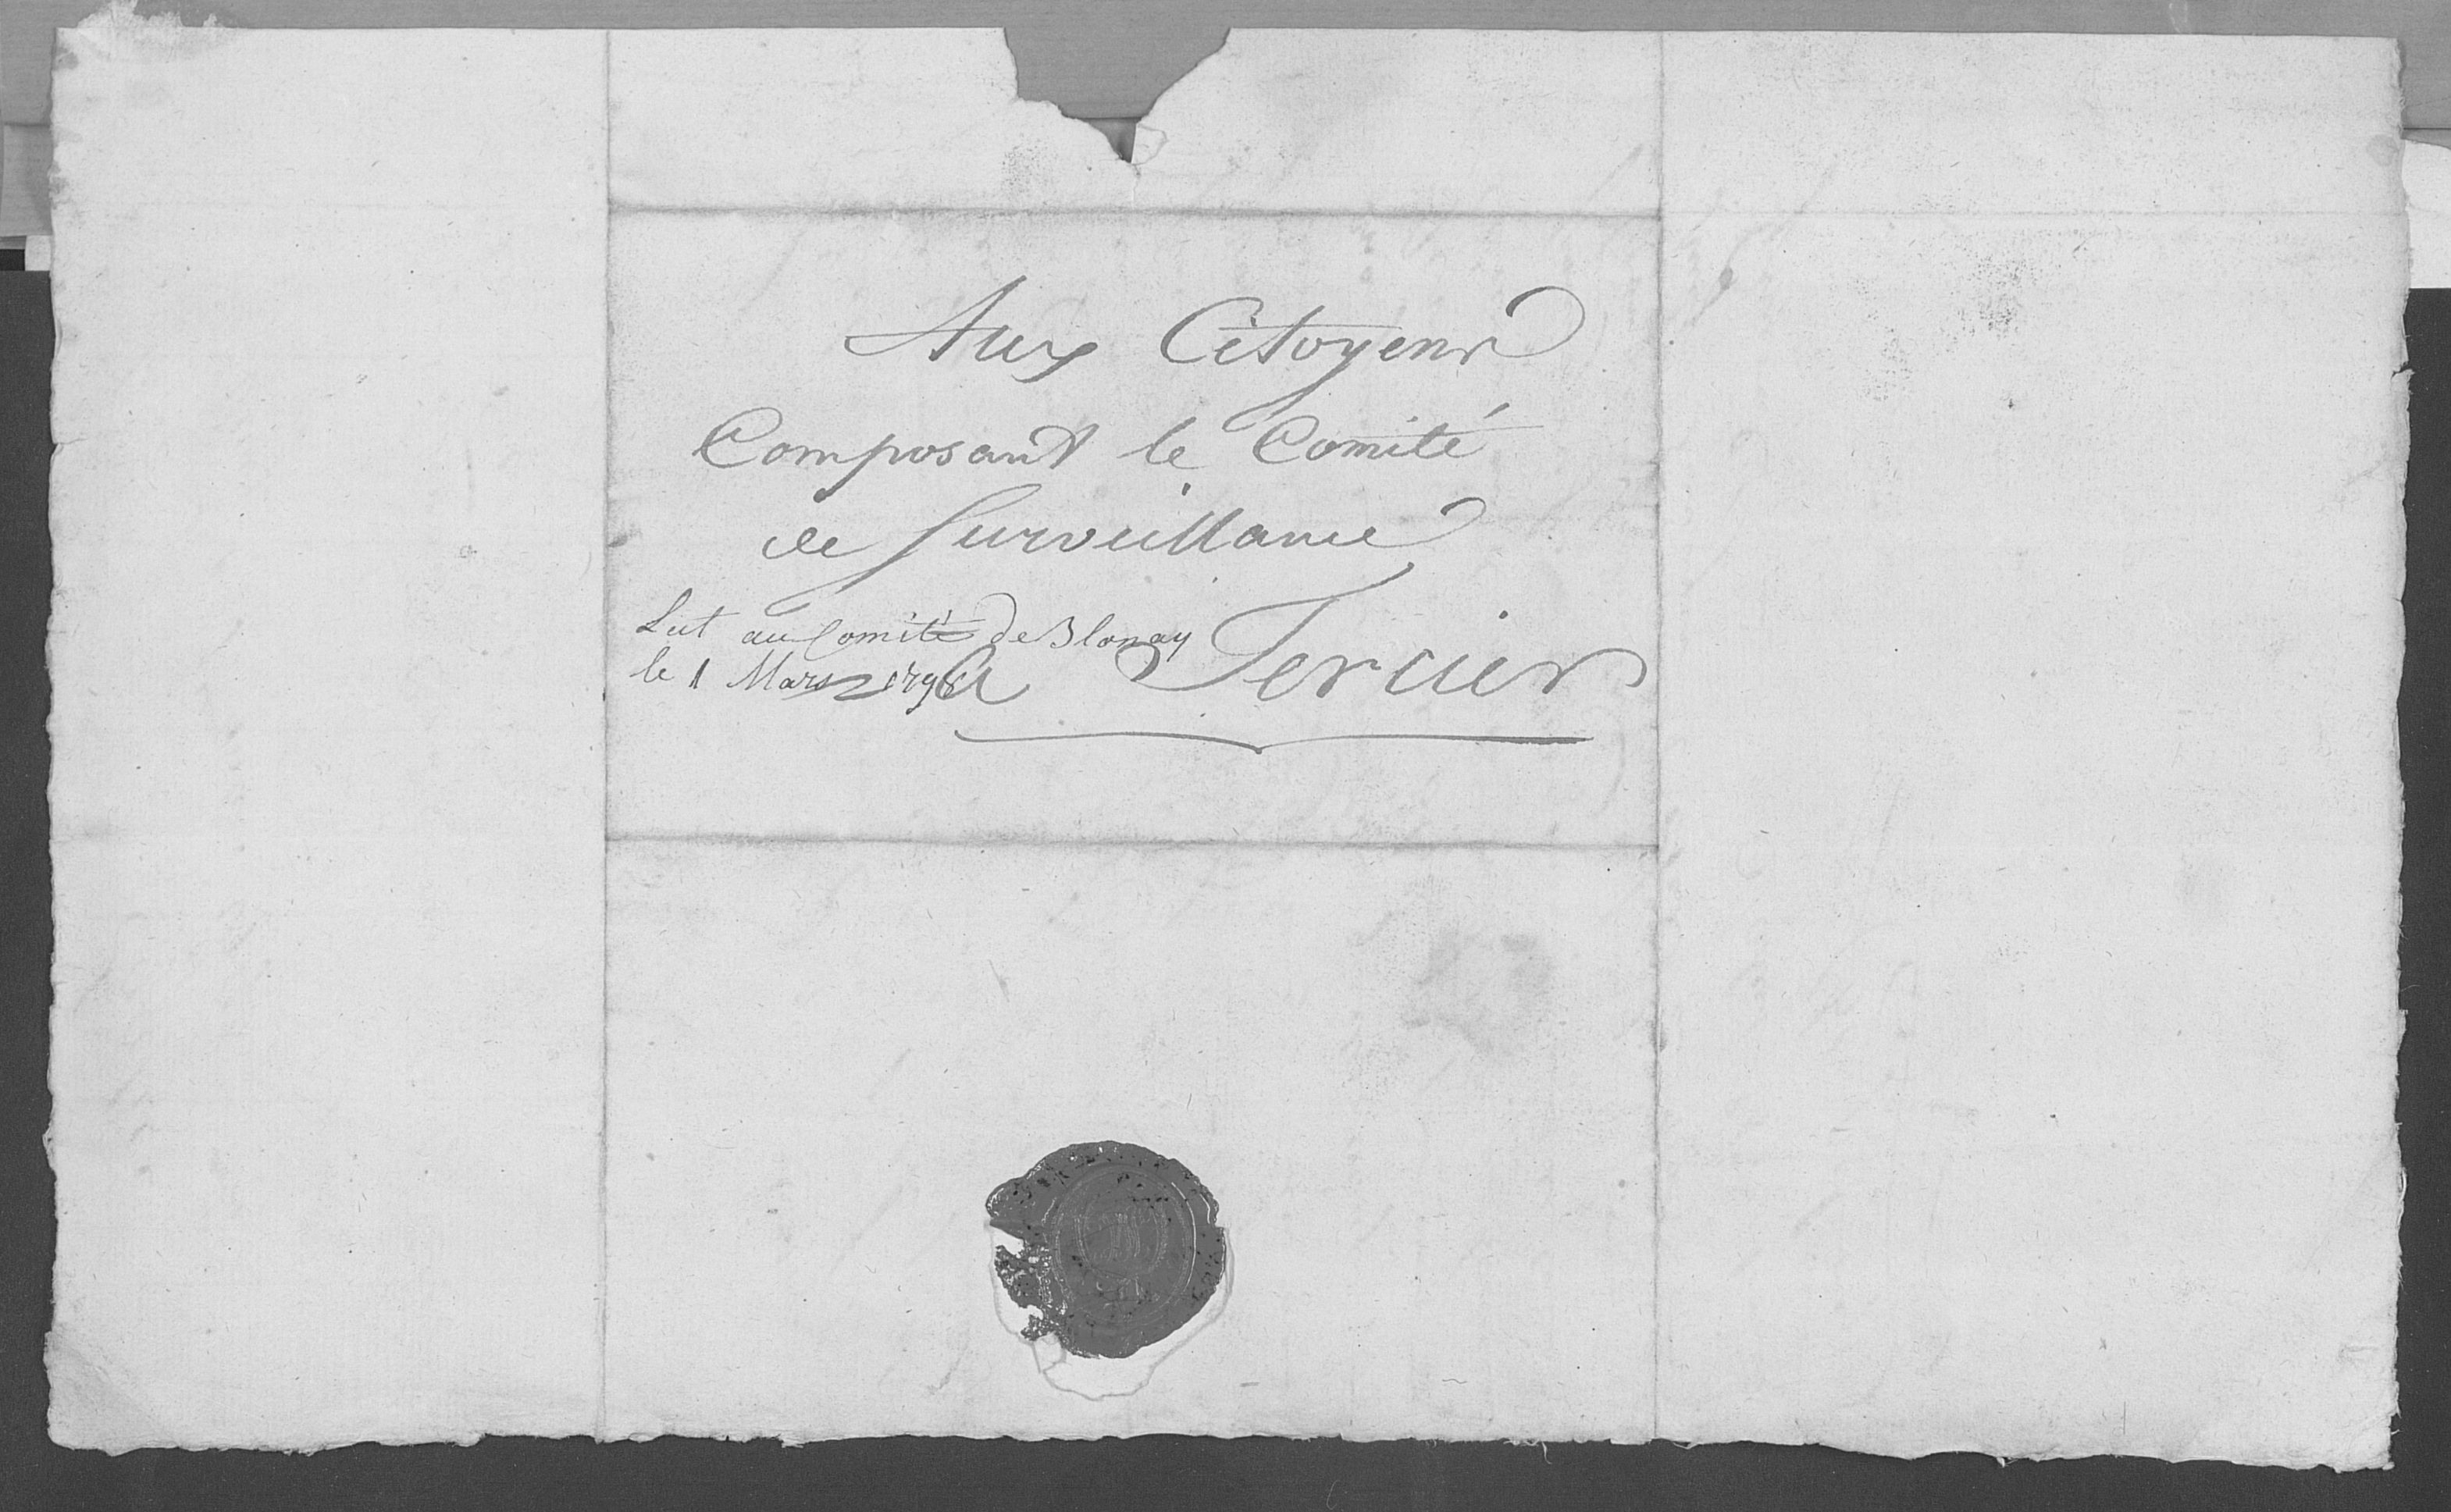 Aux Citoyens
Composant le Comité
de Surveillance
a Tercier
Lut au Comité de Blonay
le 1 Mars 1798